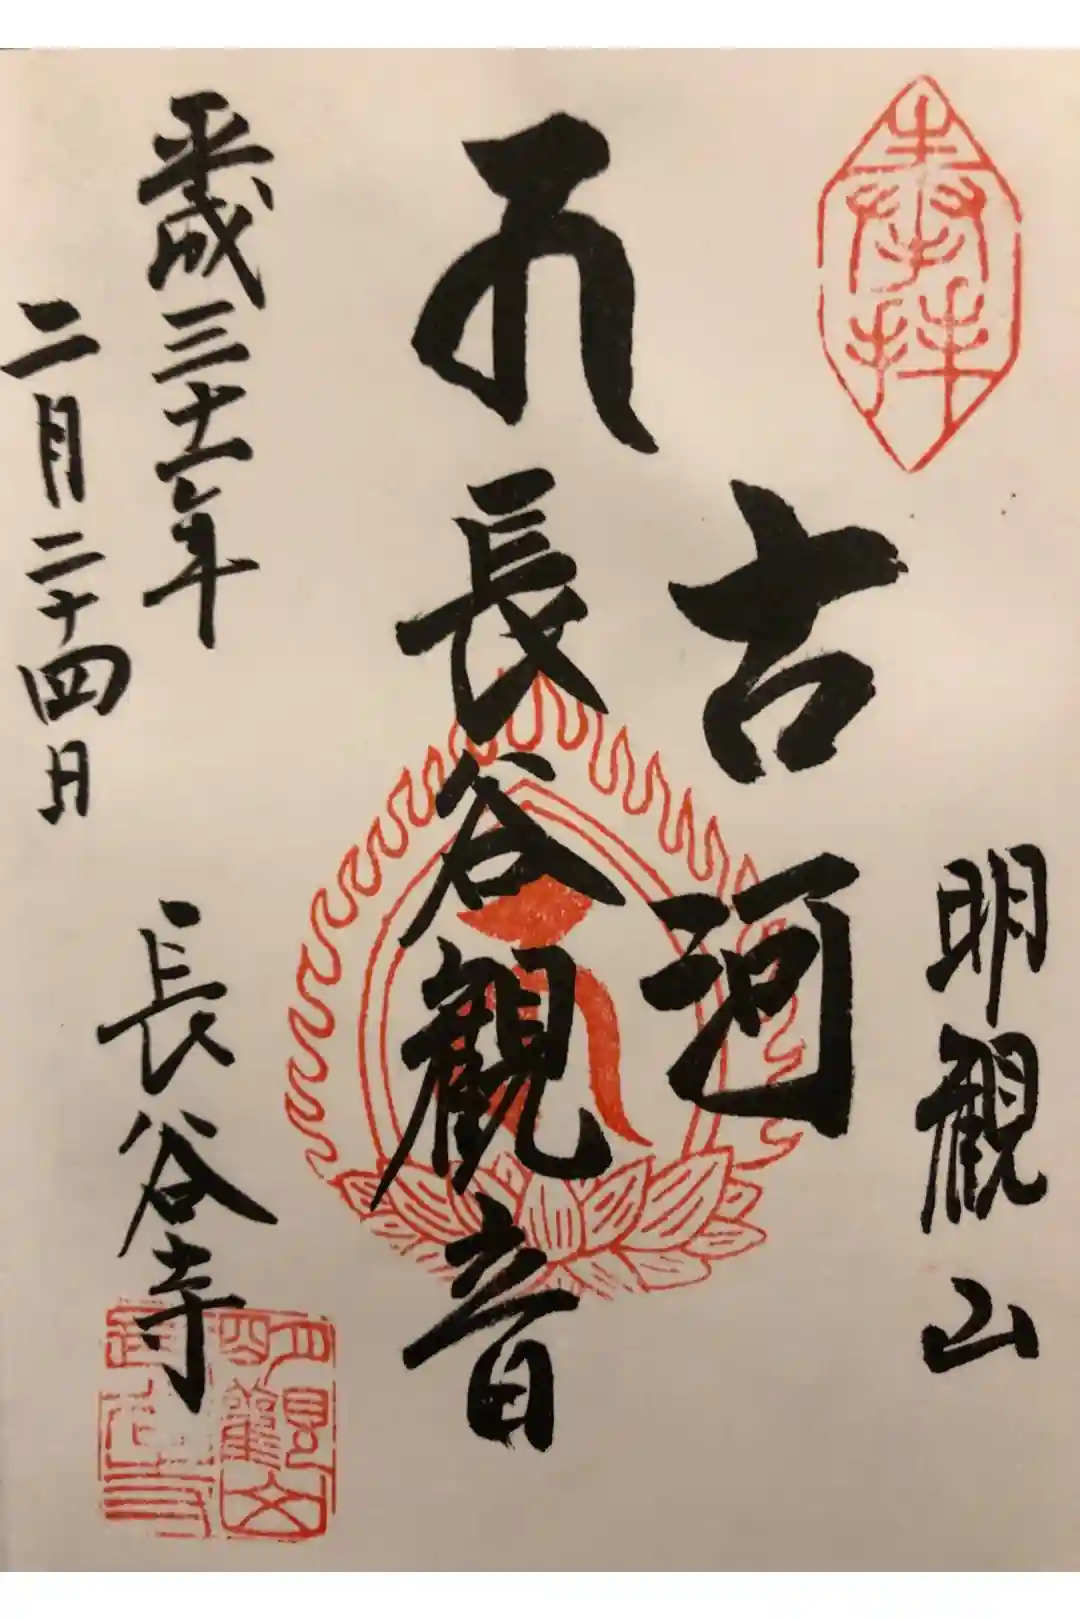 奉拝
明観山
古河
長谷觀音
平成三十一年
二月二十四日
長谷寺